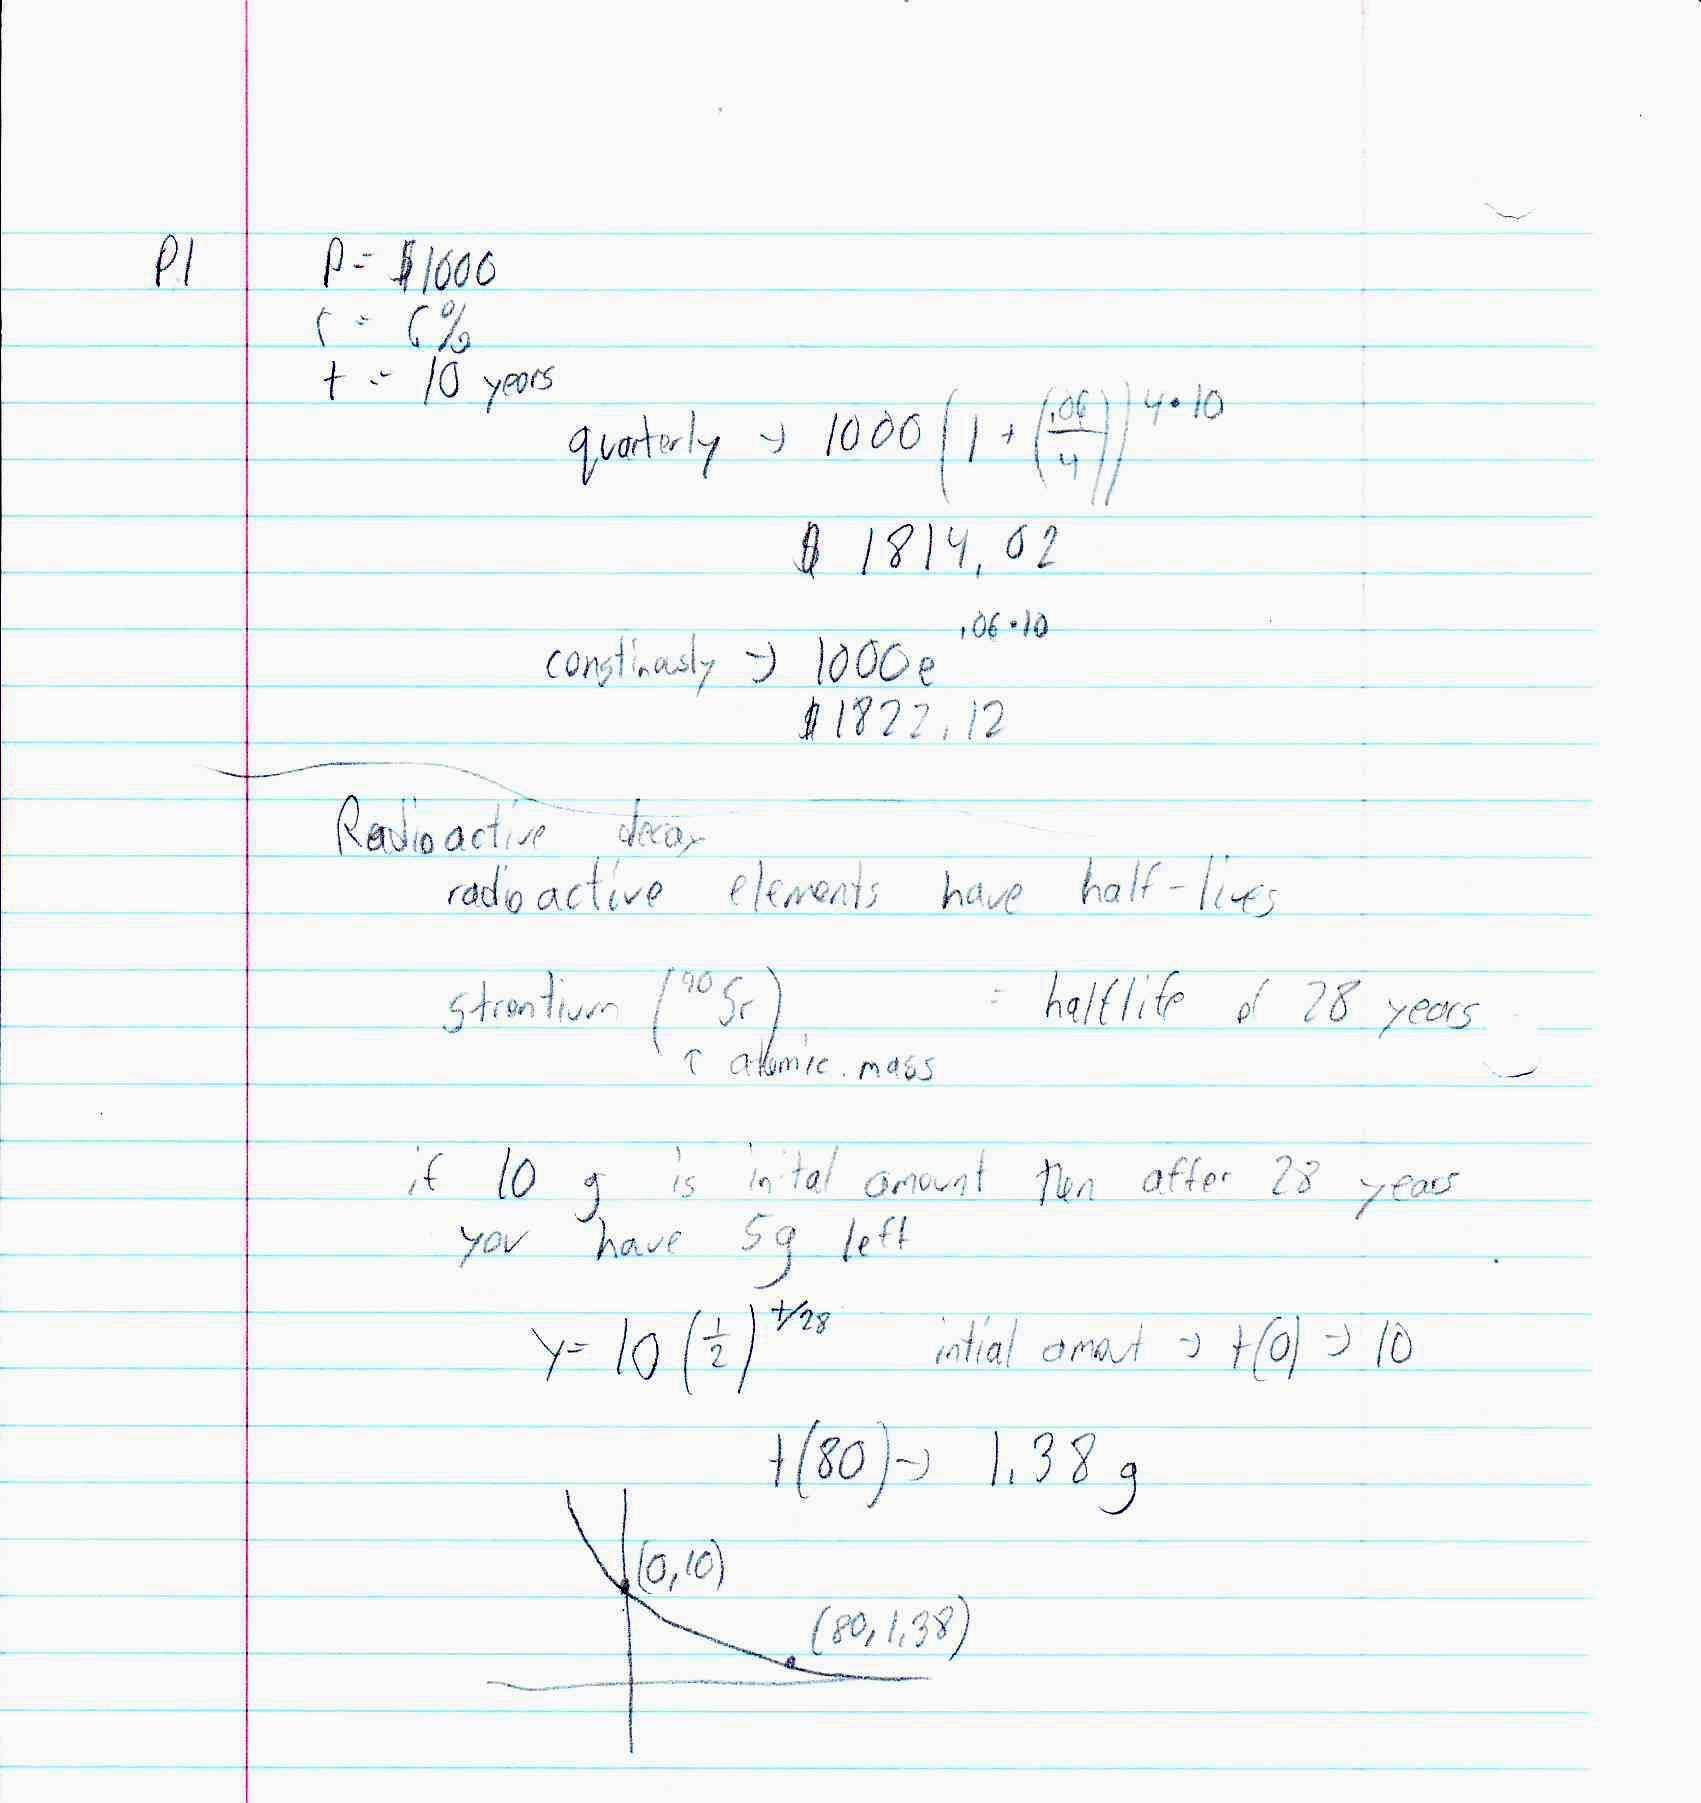 P1 P = $1000
r = 6%
t = 10 years
quarterly → 1000 (1 + (.06/4))^4•10
$ 1814.02
constinously → 1000e^.06•10
$1822.12
Radioactive decay
radioactive elements have half-lives
strontium (⁹⁰Sr) = halflife of 28 years
↑ atomic mass
if 10 g is inital amount then after 28 years
you have 5g left
y = 10 (1/2)^t/28 intial amout → t(0) → 10
t(80) → 1.38 g
(0,10)
(80,1.38)